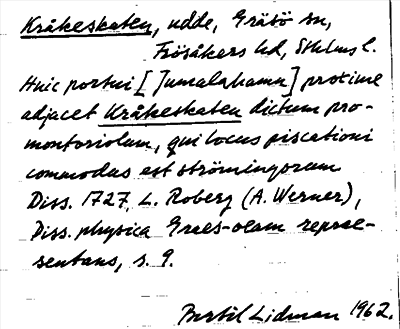 Kråkeskaten, udde, Gräsö sn,
Frösåkers hd, Sthlms l.
Huic portui [Jumalahamn] proxime
adjacet Kråkeskaten dictum pro-
montoriolum, qui locus piscationi
commodus est strömingorum
Diss. 1727, L. Roberg (A. Werner),
Diss. physica Graes-oeam reprae-
sentans, s. 9.
Bertil Lidman 1962.